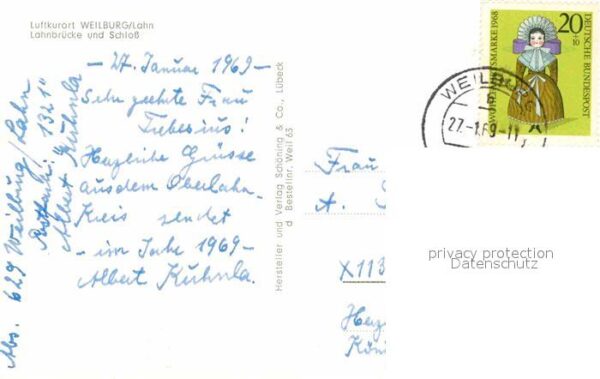 Luftkurort WEILBURG/Lahn
Lahnbrücke und Schloß
- 27. Januar 1969 -
Sehr geehrte Frau
Tiebesius!
Herzliche Grüsse
aus dem Oberlahn-
Kreis sendet
- im Jahr 1969 -
Albert Kuhnla.
Abs. 629 Weilburg/Lahn
Postfach: "1321"
Albert Kuhnla
Hersteller und Verlag Schöning & Co., Lübeck
d Bestellnr. Weil 65
20
+10
WOHLFAHRTSMARKE 1968
DEUTSCHE BUNDESPOST
WEILBURG
27.-1.69-11
Frau
A.
X113
Herz
Köni
privacy protection
Datenschutz